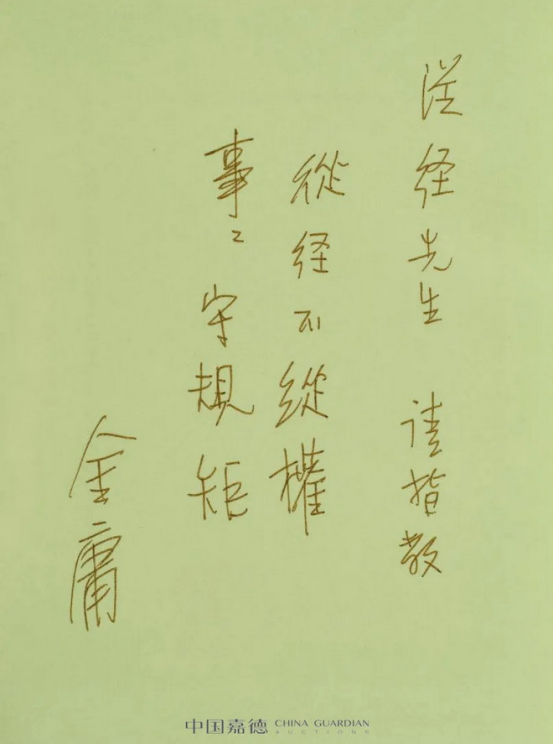 從经先生 请指教
從经不縱權
事々守規矩
金庸
中国嘉德 CHINA GUARDIAN
AUCTIONS